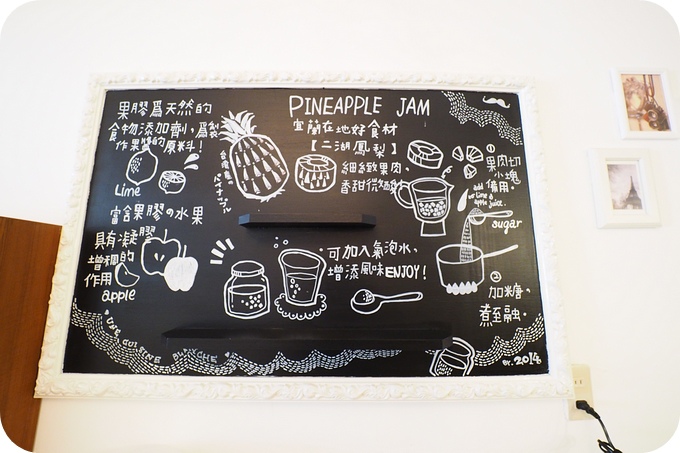 果膠為天然的
食物添加劑，為製
作果醬的原料！
Lime
富含果膠の水果
具有凝膠
增稠的
作用
apple
PINEAPPLE JAM
宜蘭在地好食材
【二湖鳳梨】
細緻果肉、
香甜微
台灣産の
パイナップル
①
果肉切
小塊
備用。
add
lime &
apple juice.
sugar
②
加糖，
煮至融。
可加入氣泡水，
增添風味ENJOY！
UNE CUISINE BLANCHE
er. 2014